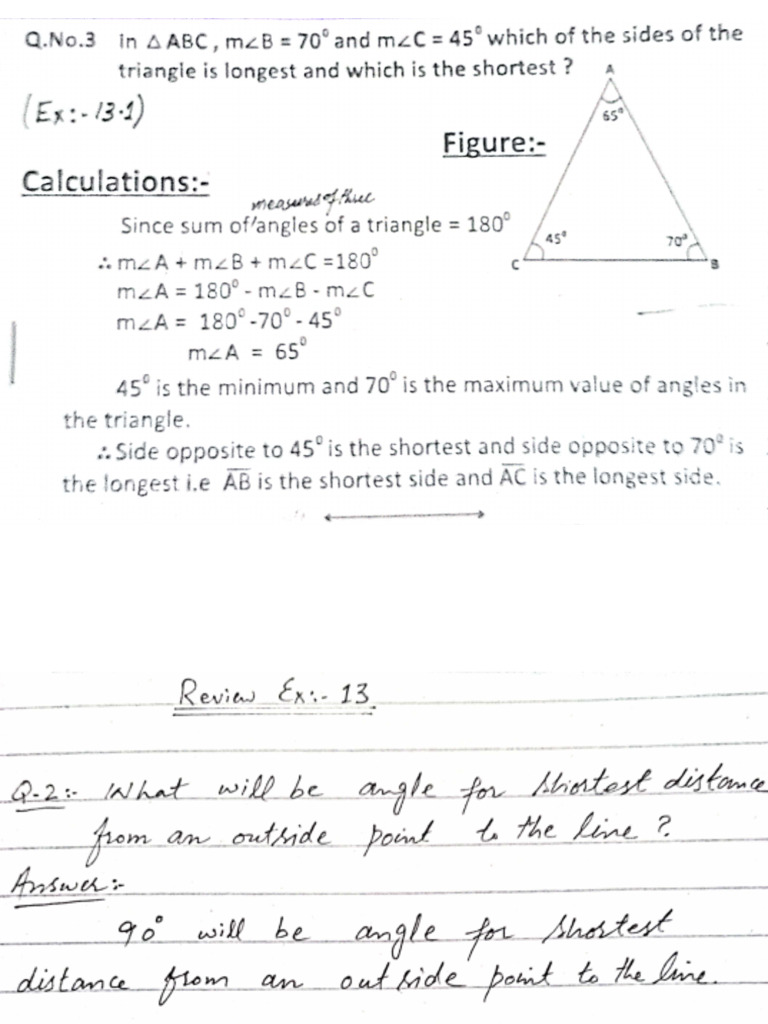 Q.No.3 in △ ABC, m∠B = 70⁰ and m∠C = 45⁰ which of the sides of the
triangle is longest and which is the shortest ?
(Ex:- 13.1)
Figure:-
A
65⁰
45⁰
70⁰
C
B
Calculations:-
measures of three
Since sum of angles of a triangle = 180⁰
∴ m∠A + m∠B + m∠C =180⁰
m∠A = 180⁰ - m∠B - m∠C
m∠A = 180⁰ -70⁰ - 45⁰
m∠A = 65⁰
45⁰ is the minimum and 70⁰ is the maximum value of angles in
the triangle.
∴ Side opposite to 45⁰ is the shortest and side opposite to 70⁰ is
the longest i.e A̅B̅ is the shortest side and A̅C̅ is the longest side.
Review Ex:- 13
Q-2:- What will be angle for shortest distance
from an outside point to the line ?
Answer:-
90° will be angle for shortest
distance from an out side point to the line.